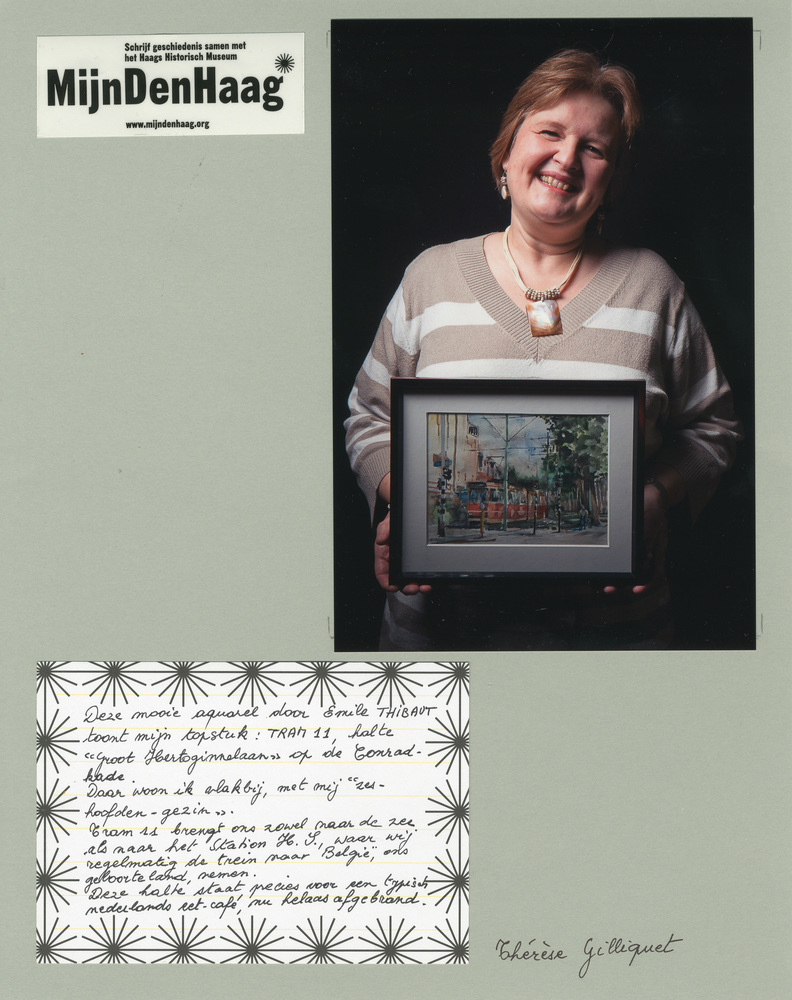 Schrijf geschiedenis samen met
het Haags Historisch Museum
MijnDenHaag
www.mijndenhaag.org
Deze mooie aquarel door Emile THiBAUT
toont mijn topstuk : TRAM 11, halte
"Groot Hertoginnelaan" op de Conrad-
kade.
Daar woon ik vlakbij, met mij "zes-
hoofden-gezin".
Tram 11 brengt ons zowel naar de zee
als naar het Station H. S., waar wij
regelmatig de trein naar België, ons
geboorteland, nemen.
Deze halte staat precies voor een typisch
nederlands eet-café, nu helaas afgebrand.
Thérèse Gilliquet